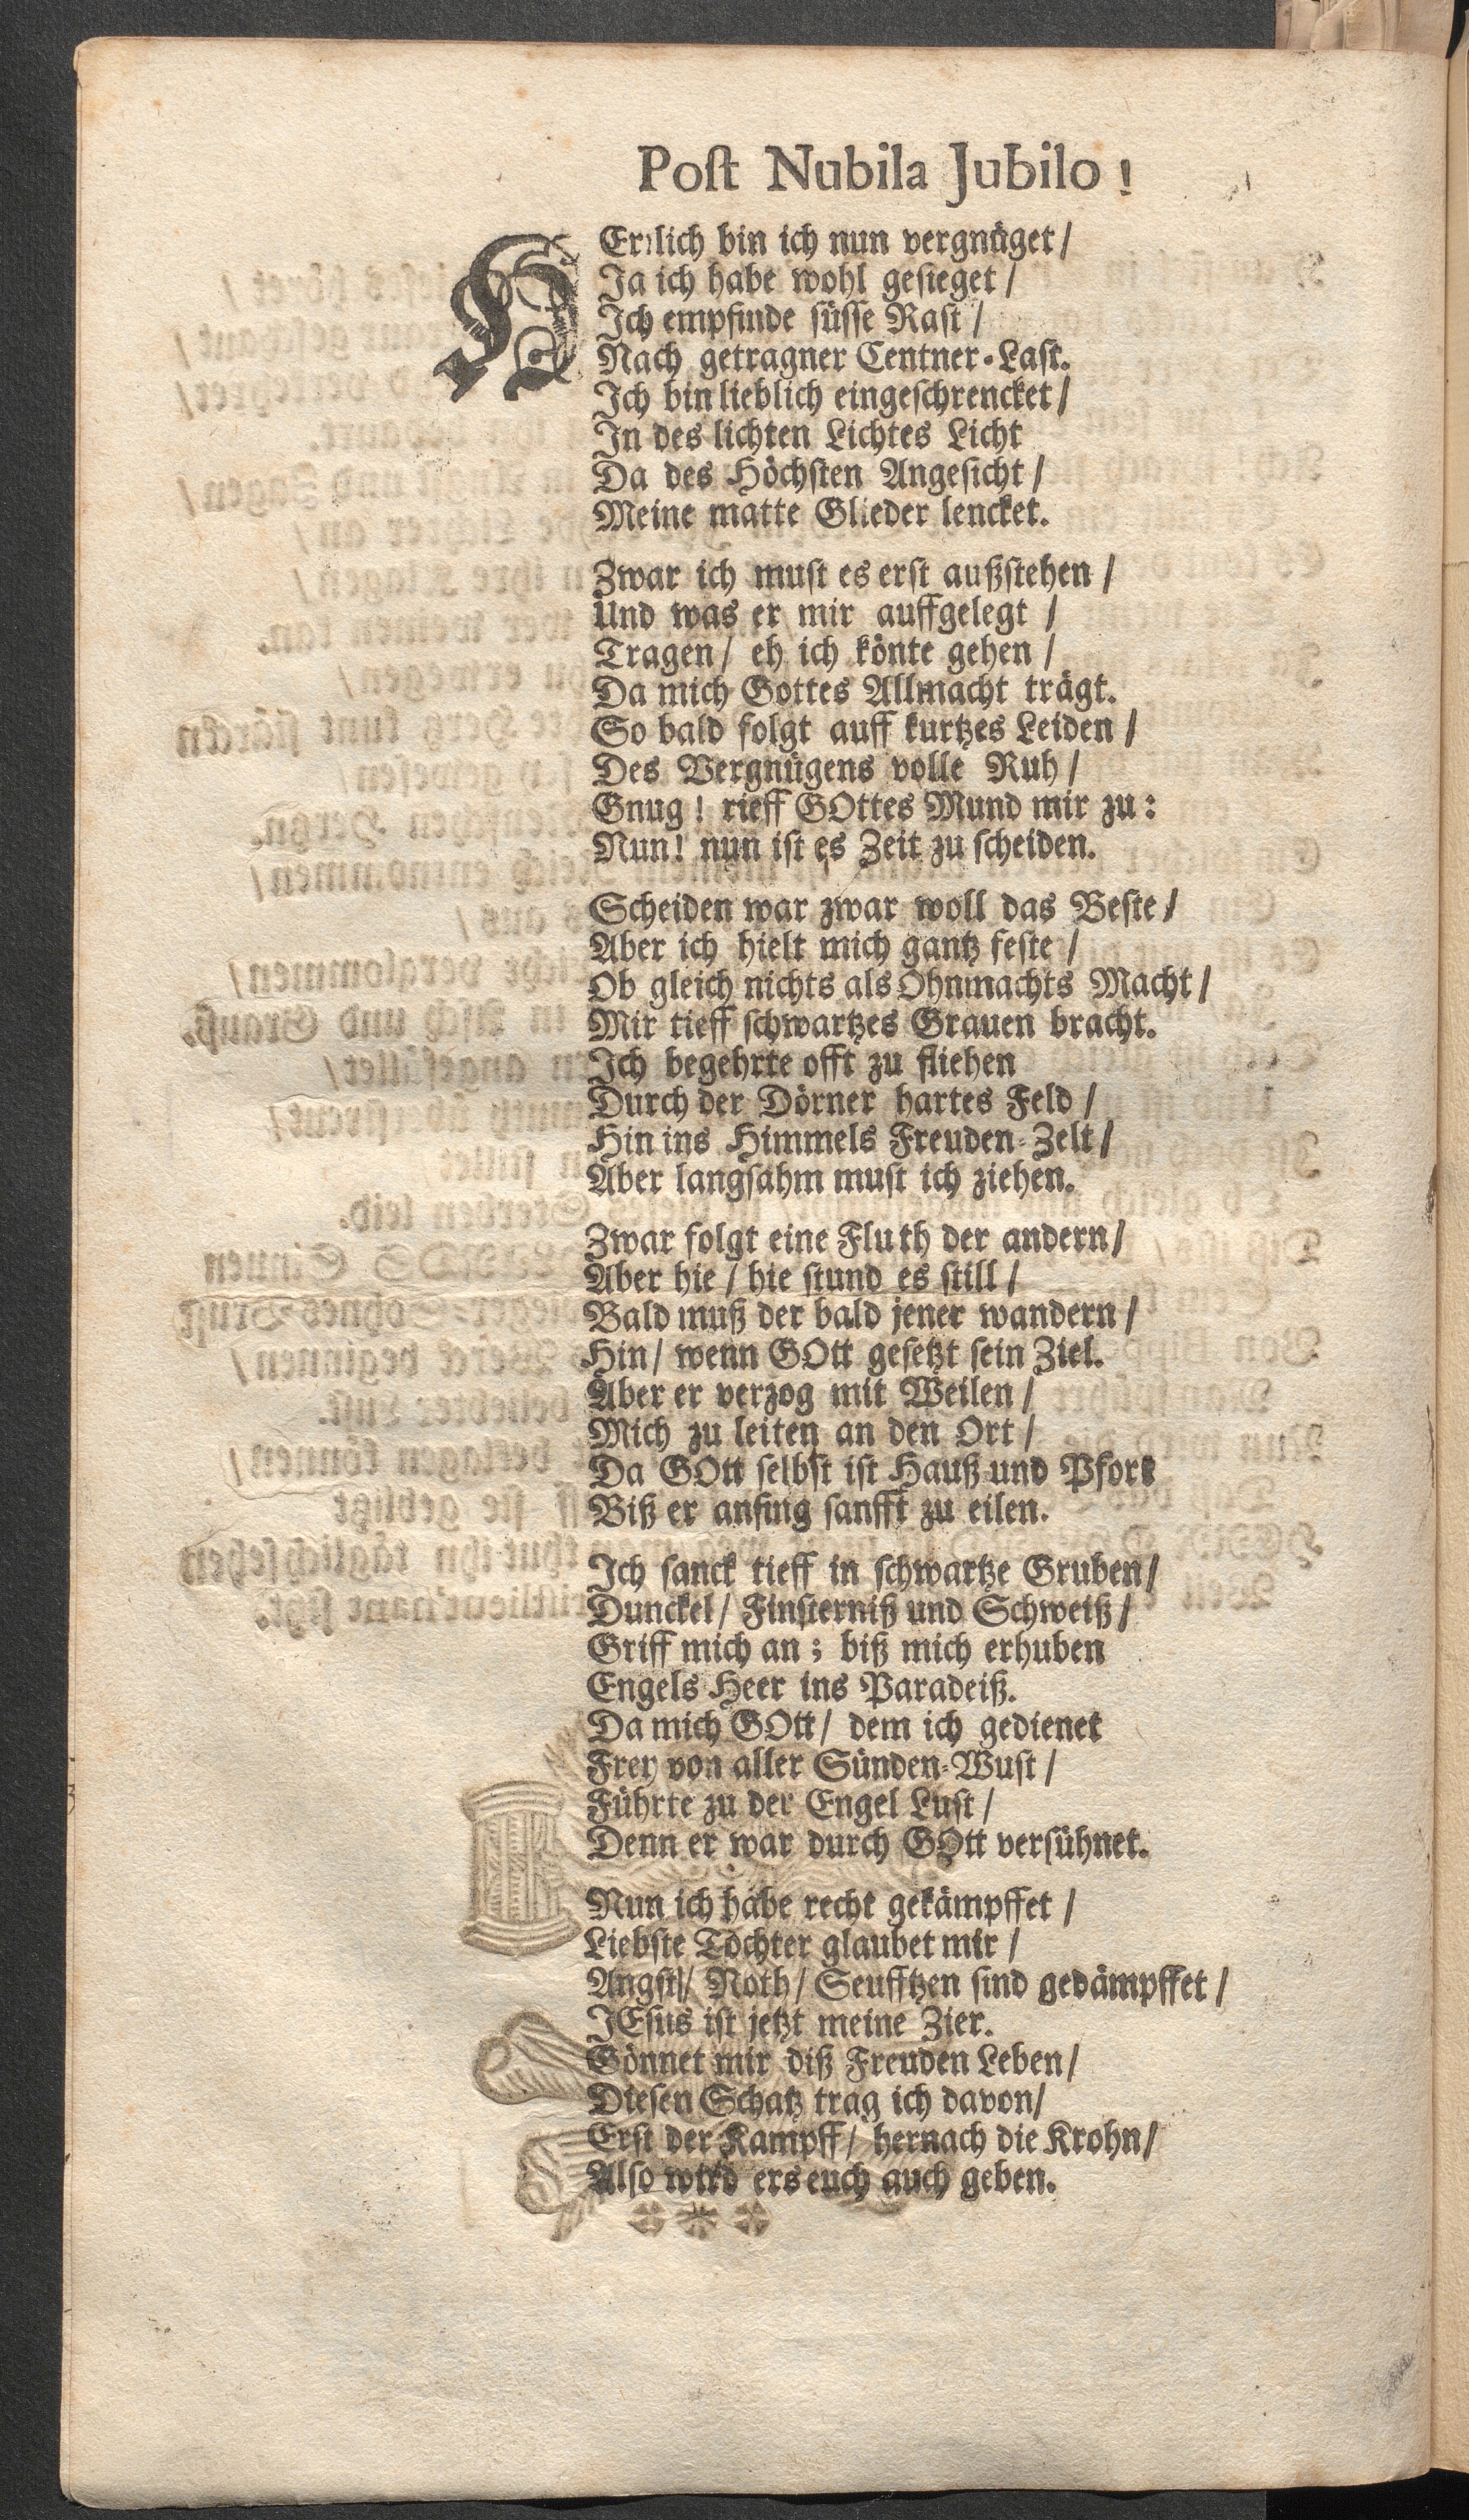 Post Nubila Jubilo!
HErrlich bin ich nun vergnüget/
Ja ich habe wohl gesieget/
Ich empfinde süsse Rast/
Nach getragner Centner-Last.
Ich bin lieblich eingeschrencket/
In des lichten Lichtes Licht
Da des Höchsten Angesicht/
Meine matte Glieder lencket.
Zwar ich must es erst außstehen/
Und was er mir auffgelegt/
Tragen/ eh ich könte gehen/
Da mich Gottes Allmacht trägt.
So bald folgt auff kurtzes Leiden/
Des Vergnügens volle Ruh/
Gnug! rieff GOttes Mund mir zu:
Nun! nun ist es Zeit zu scheiden.
Scheiden war zwar woll das Beste/
Aber ich hielt mich gantz feste/
Ob gleich nichts als Ohnmachts Macht/
Mir tieff schwartzes Grauen bracht.
Ich begehrte offt zu fliehen
Durch der Dörner hartes Feld/
Hin ins Himmels Freuden-Zelt/
Aber langsahm must ich ziehen.
Zwar folgt eine Fluth der andern/
Aber hie/ hie stund es still/
Bald muß der bald jener wandern/
Hin/ wenn GOtt gesetzt sein Ziel.
Aber er verzog mit Weilen/
Mich zu leiten an den Ort/
Da GOtt selbst ist Hauß und Pfort
Biß er anfing sanfft zu eilen.
Ich sanck tieff in schwartze Gruben/
Dunckel/ Finsterniß und Schweiß/
Griff mich an; biß mich erhuben
Engels Heer ins Paradeiß.
Da mich GOtt/ dem ich gedienet
Frey von aller Sünden-Wust/
Führte zu der Engel Lust/
Denn er war durch GOtt versühnet.
Nun ich habe recht gekämpffet/
Liebste Tochter glaubet mir/
Angst/ Noth/ Seufftzen sind gedämpffet/
JEsus ist jetzt meine Zier.
Gönnet mir diß Freuden Leben/
Diesen Schatz trag ich davon/
Erst der Kampff/ hernach die Krohn/
Also wird ers euch auch geben.